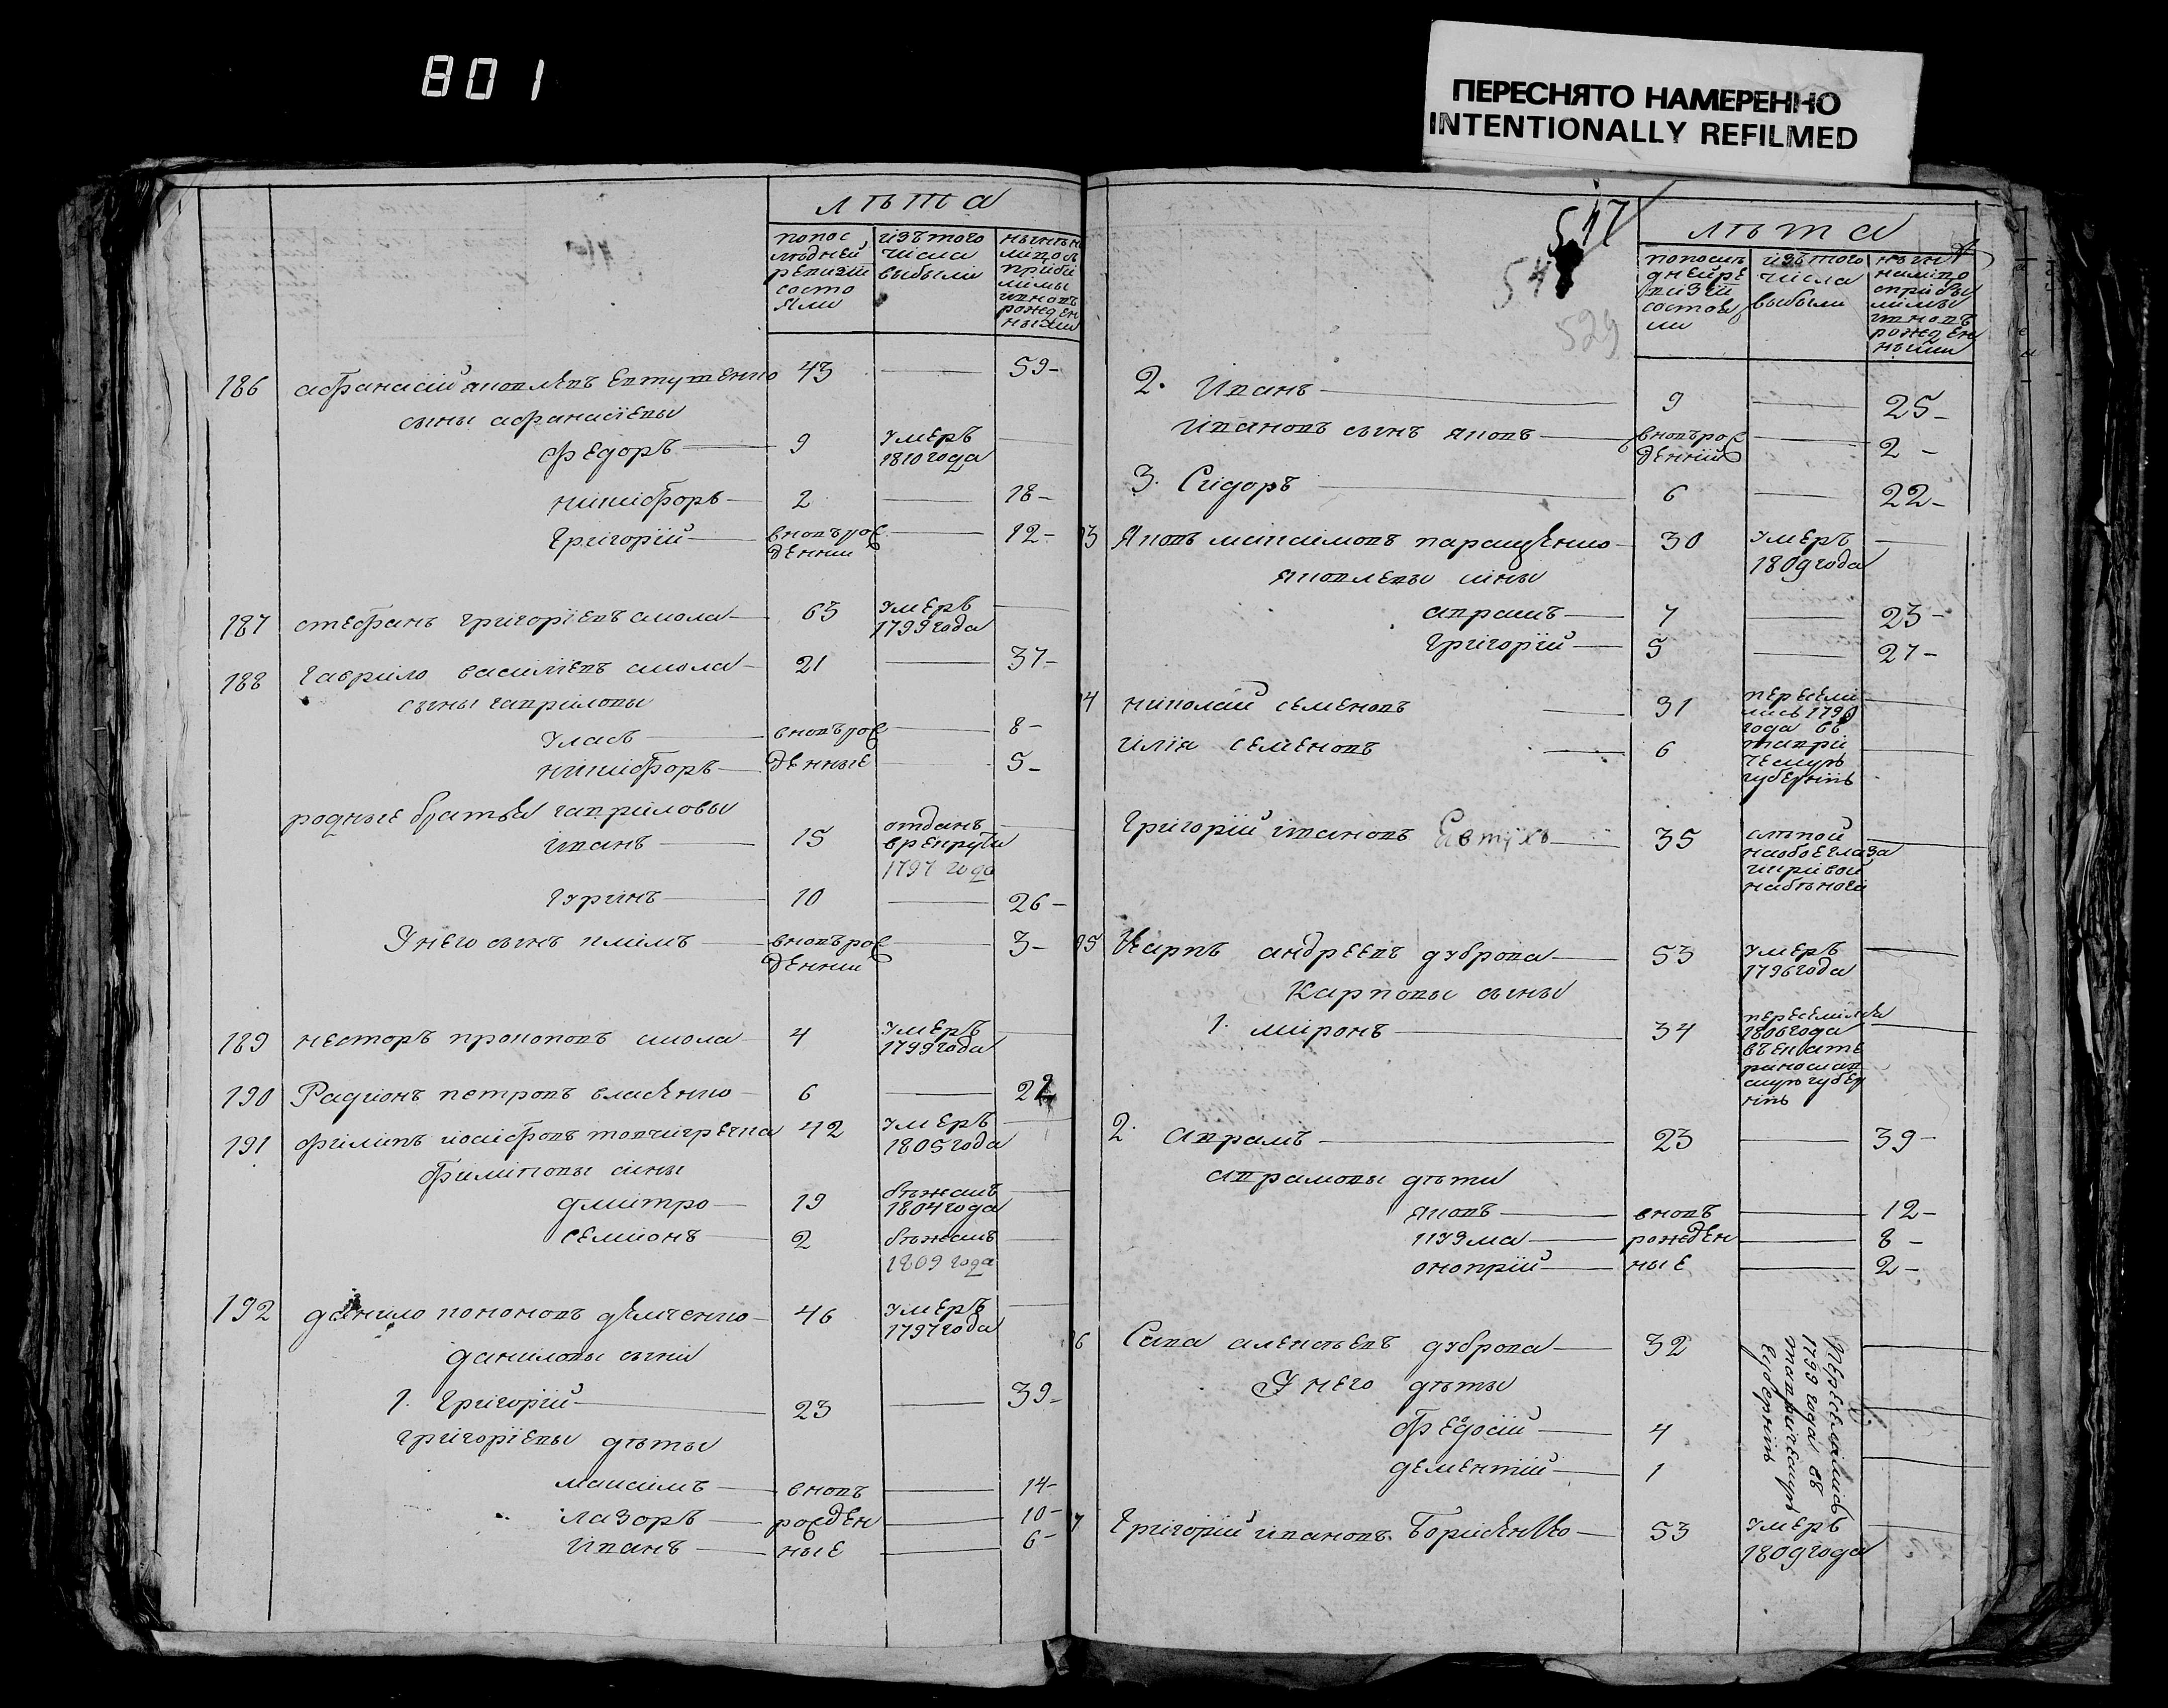 801
ПЕРЕСНЯТО НАМЕРЕННО
INTENTIONALLY REFILMED
лѣта
попос лѣдней ревизіи состо яли
изътого числа выбыли
186 афанасій яковлевъ евтушенко 43 — 59
сыны афанасіевы
федоръ 9 умеръ 1810 года —
никифоръ 2 — 18
григорій вновърож денніи — 12
187 стефанъ григоріевъ смола 63 умеръ 1799 года —
188 гаврило василіевъ смола 21 — 37
сыны гавриловы
уласъ вновърож — 8
никифоръ денные — 5
родные братья гавриловы
иванъ 15 отданъ врекруты 1797 года —
гуринъ 10 — 26
У него сынъ климъ вновърож денніи — 3
189 несторъ прокоповъ смола 4 умеръ 1799 года —
190 Радионъ петровъ власенко 6 — 22
191 филипъ иосифовъ товчигречка 42 умеръ 1805 года —
филиповы сины
дмитро 19 бѣжалъ 1804 года —
семионъ 2 бѣжалъ 1809 года —
192 данило кононовъ демченко 46 умеръ 1797 года —
даниловы сыни
1. григорій 23 — 39
григоріевы дѣты
максимъ вновъ — 14
лазоръ рожден — 10
иванъ ные — 6
547
529
лѣта
попослѣ днейре визіи состоя ли
изътого числа выбыли
2. Иванъ 9 — 25
Ивановъ сынъ яковъ вновърож денній — 2
3. Сидоръ 6 — 22
3 Яковъ максимовъ паращенко 30 умеръ 1809 года —
яковлевы сины
аврамъ 7 — 23
григорій 5 — 21
4 николай семеновъ 31 переселились 1799 года въ таврическую губернію —
илія семеновъ 6 —
григорій ивановъ Евтухъ 35 слѣпой наобоеглаза —
5 Карпъ андреевъ дуброва 53 умеръ 1796 года —
Карповы сыны
1. миронъ 34 переселился 1806 года въекатеринославскую губернію —
2. аврамъ 23 — 39
аврамовы дѣти
яковъ вновъ — 12
кузма рожден — 8
оноприй ные — 2
6 Сава алексѣевъ дуброва 32 Переселились 1799 года въ таврическую губернію —
У него дѣты
федосій 4 —
дементій 1 —
7 григорій ивановъ Борисенко 53 умеръ 1809 года